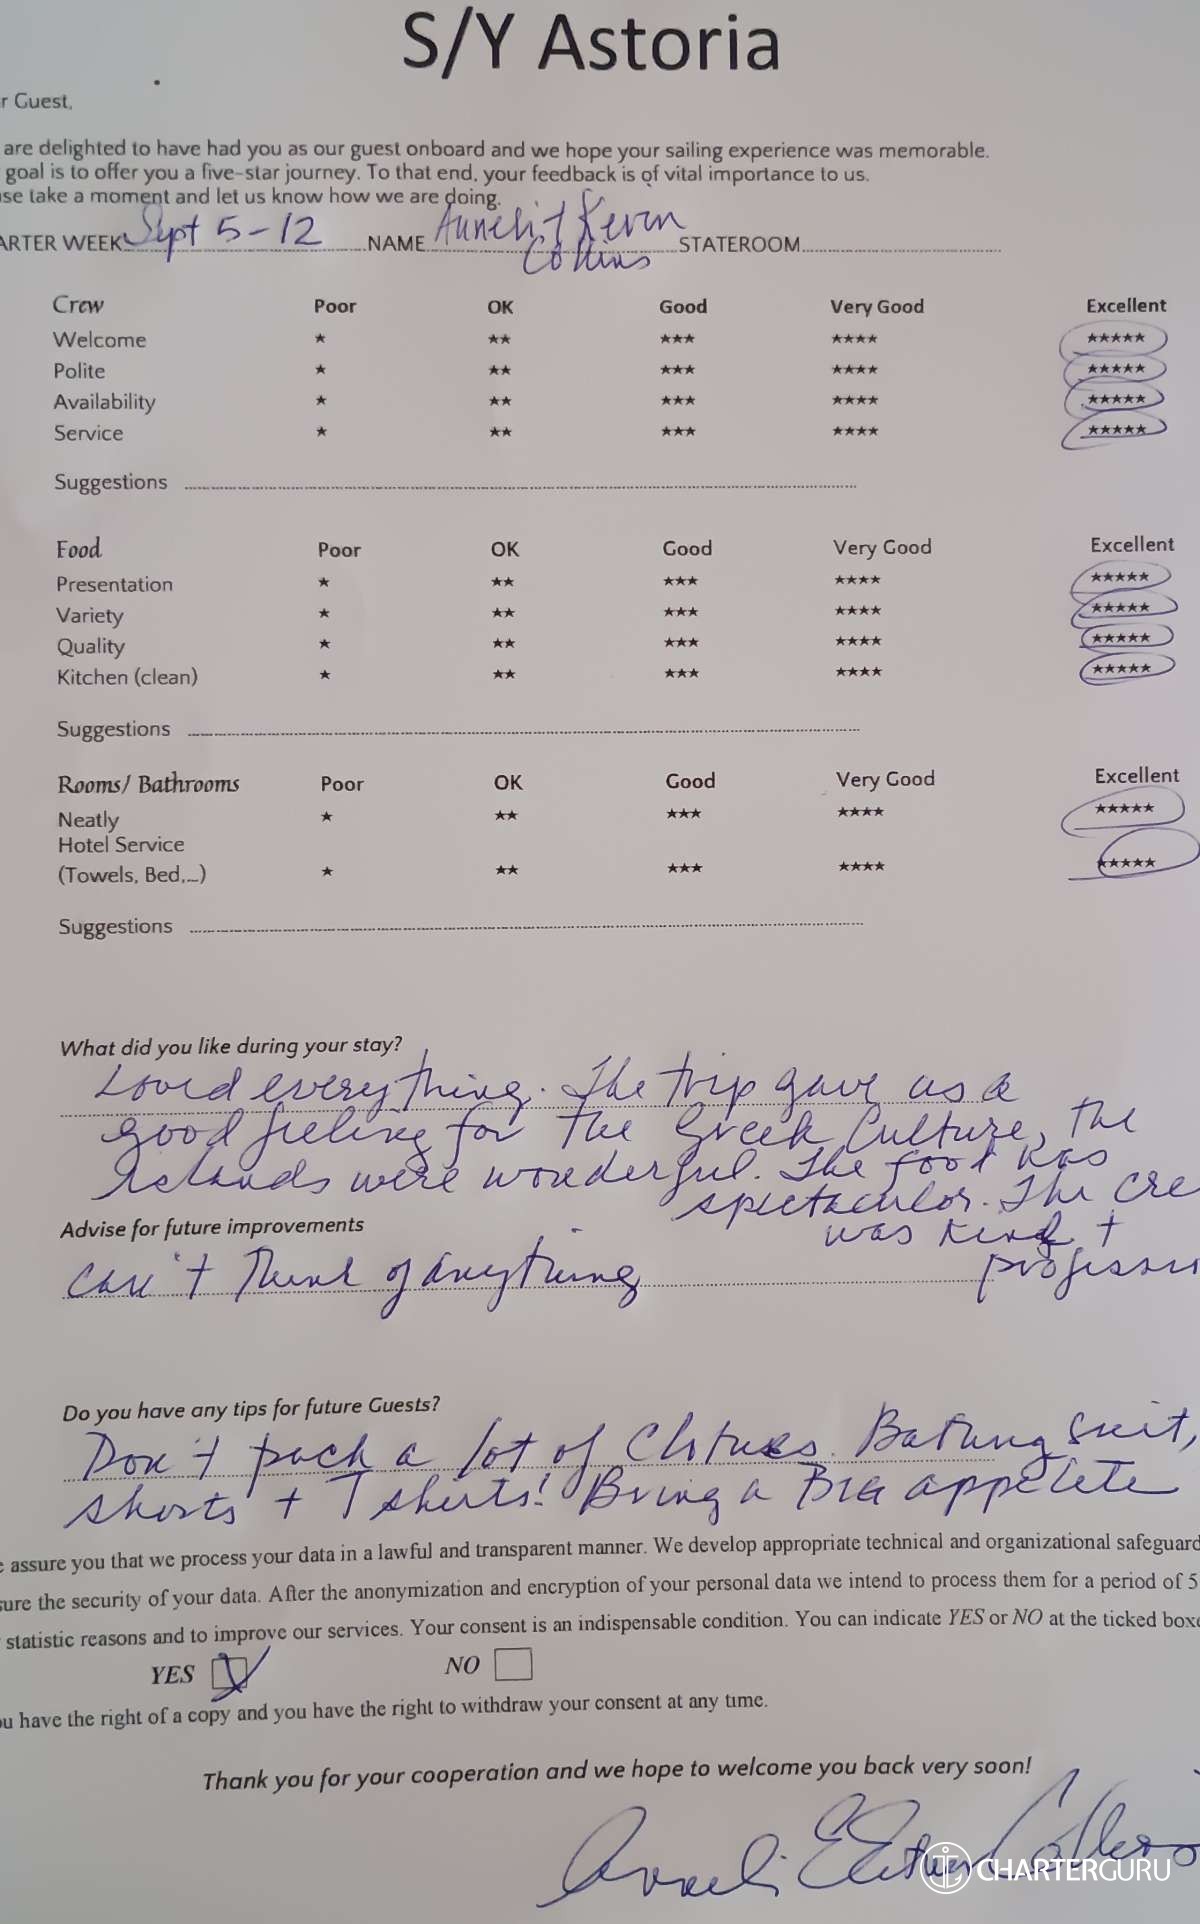 S/Y Astoria
r Guest,
are delighted to have had you as our guest onboard and we hope your sailing experience was memorable.
goal is to offer you a five-star journey. To that end, your feedback is of vital importance to us.
se take a moment and let us know how we are doing.
ARTER WEEK Sept 5-12 NAME Kevin STATEROOM
Collins
Crew Poor OK Good Very Good Excellent
Welcome ★ ★★ ★★★ ★★★★ ★★★★★
Polite ★ ★★ ★★★ ★★★★ ★★★★★
Availability ★ ★★ ★★★ ★★★★ ★★★★★
Service ★ ★★ ★★★ ★★★★ ★★★★★
Suggestions
Food Poor OK Good Very Good Excellent
Presentation ★ ★★ ★★★ ★★★★ ★★★★★
Variety ★ ★★ ★★★ ★★★★ ★★★★★
Quality ★ ★★ ★★★ ★★★★ ★★★★★
Kitchen (clean) ★ ★★ ★★★ ★★★★ ★★★★★
Suggestions
Rooms/ Bathrooms Poor OK Good Very Good Excellent
Neatly ★ ★★ ★★★ ★★★★ ★★★★★
Hotel Service
(Towels, Bed,...) ★ ★★ ★★★ ★★★★ ★★★★★
Suggestions
What did you like during your stay?
Loved everything. The trip gave us a
good feeling for the Greek Culture, the
Islands were wonderful. The food was
spectacular. The cre
was kind +
profession
Advise for future improvements
Can't think of anything
Do you have any tips for future Guests?
Don't pack a lot of Clothes. Bathing suit,
shorts + T shirts! Bring a BIG appetete
e assure you that we process your data in a lawful and transparent manner. We develop appropriate technical and organizational safeguard
sure the security of your data. After the anonymization and encryption of your personal data we intend to process them for a period of 5
statistic reasons and to improve our services. Your consent is an indispensable condition. You can indicate YES or NO at the ticked boxe
YES NO
ou have the right of a copy and you have the right to withdraw your consent at any time.
Thank you for your cooperation and we hope to welcome you back very soon!
CHARTERGURU